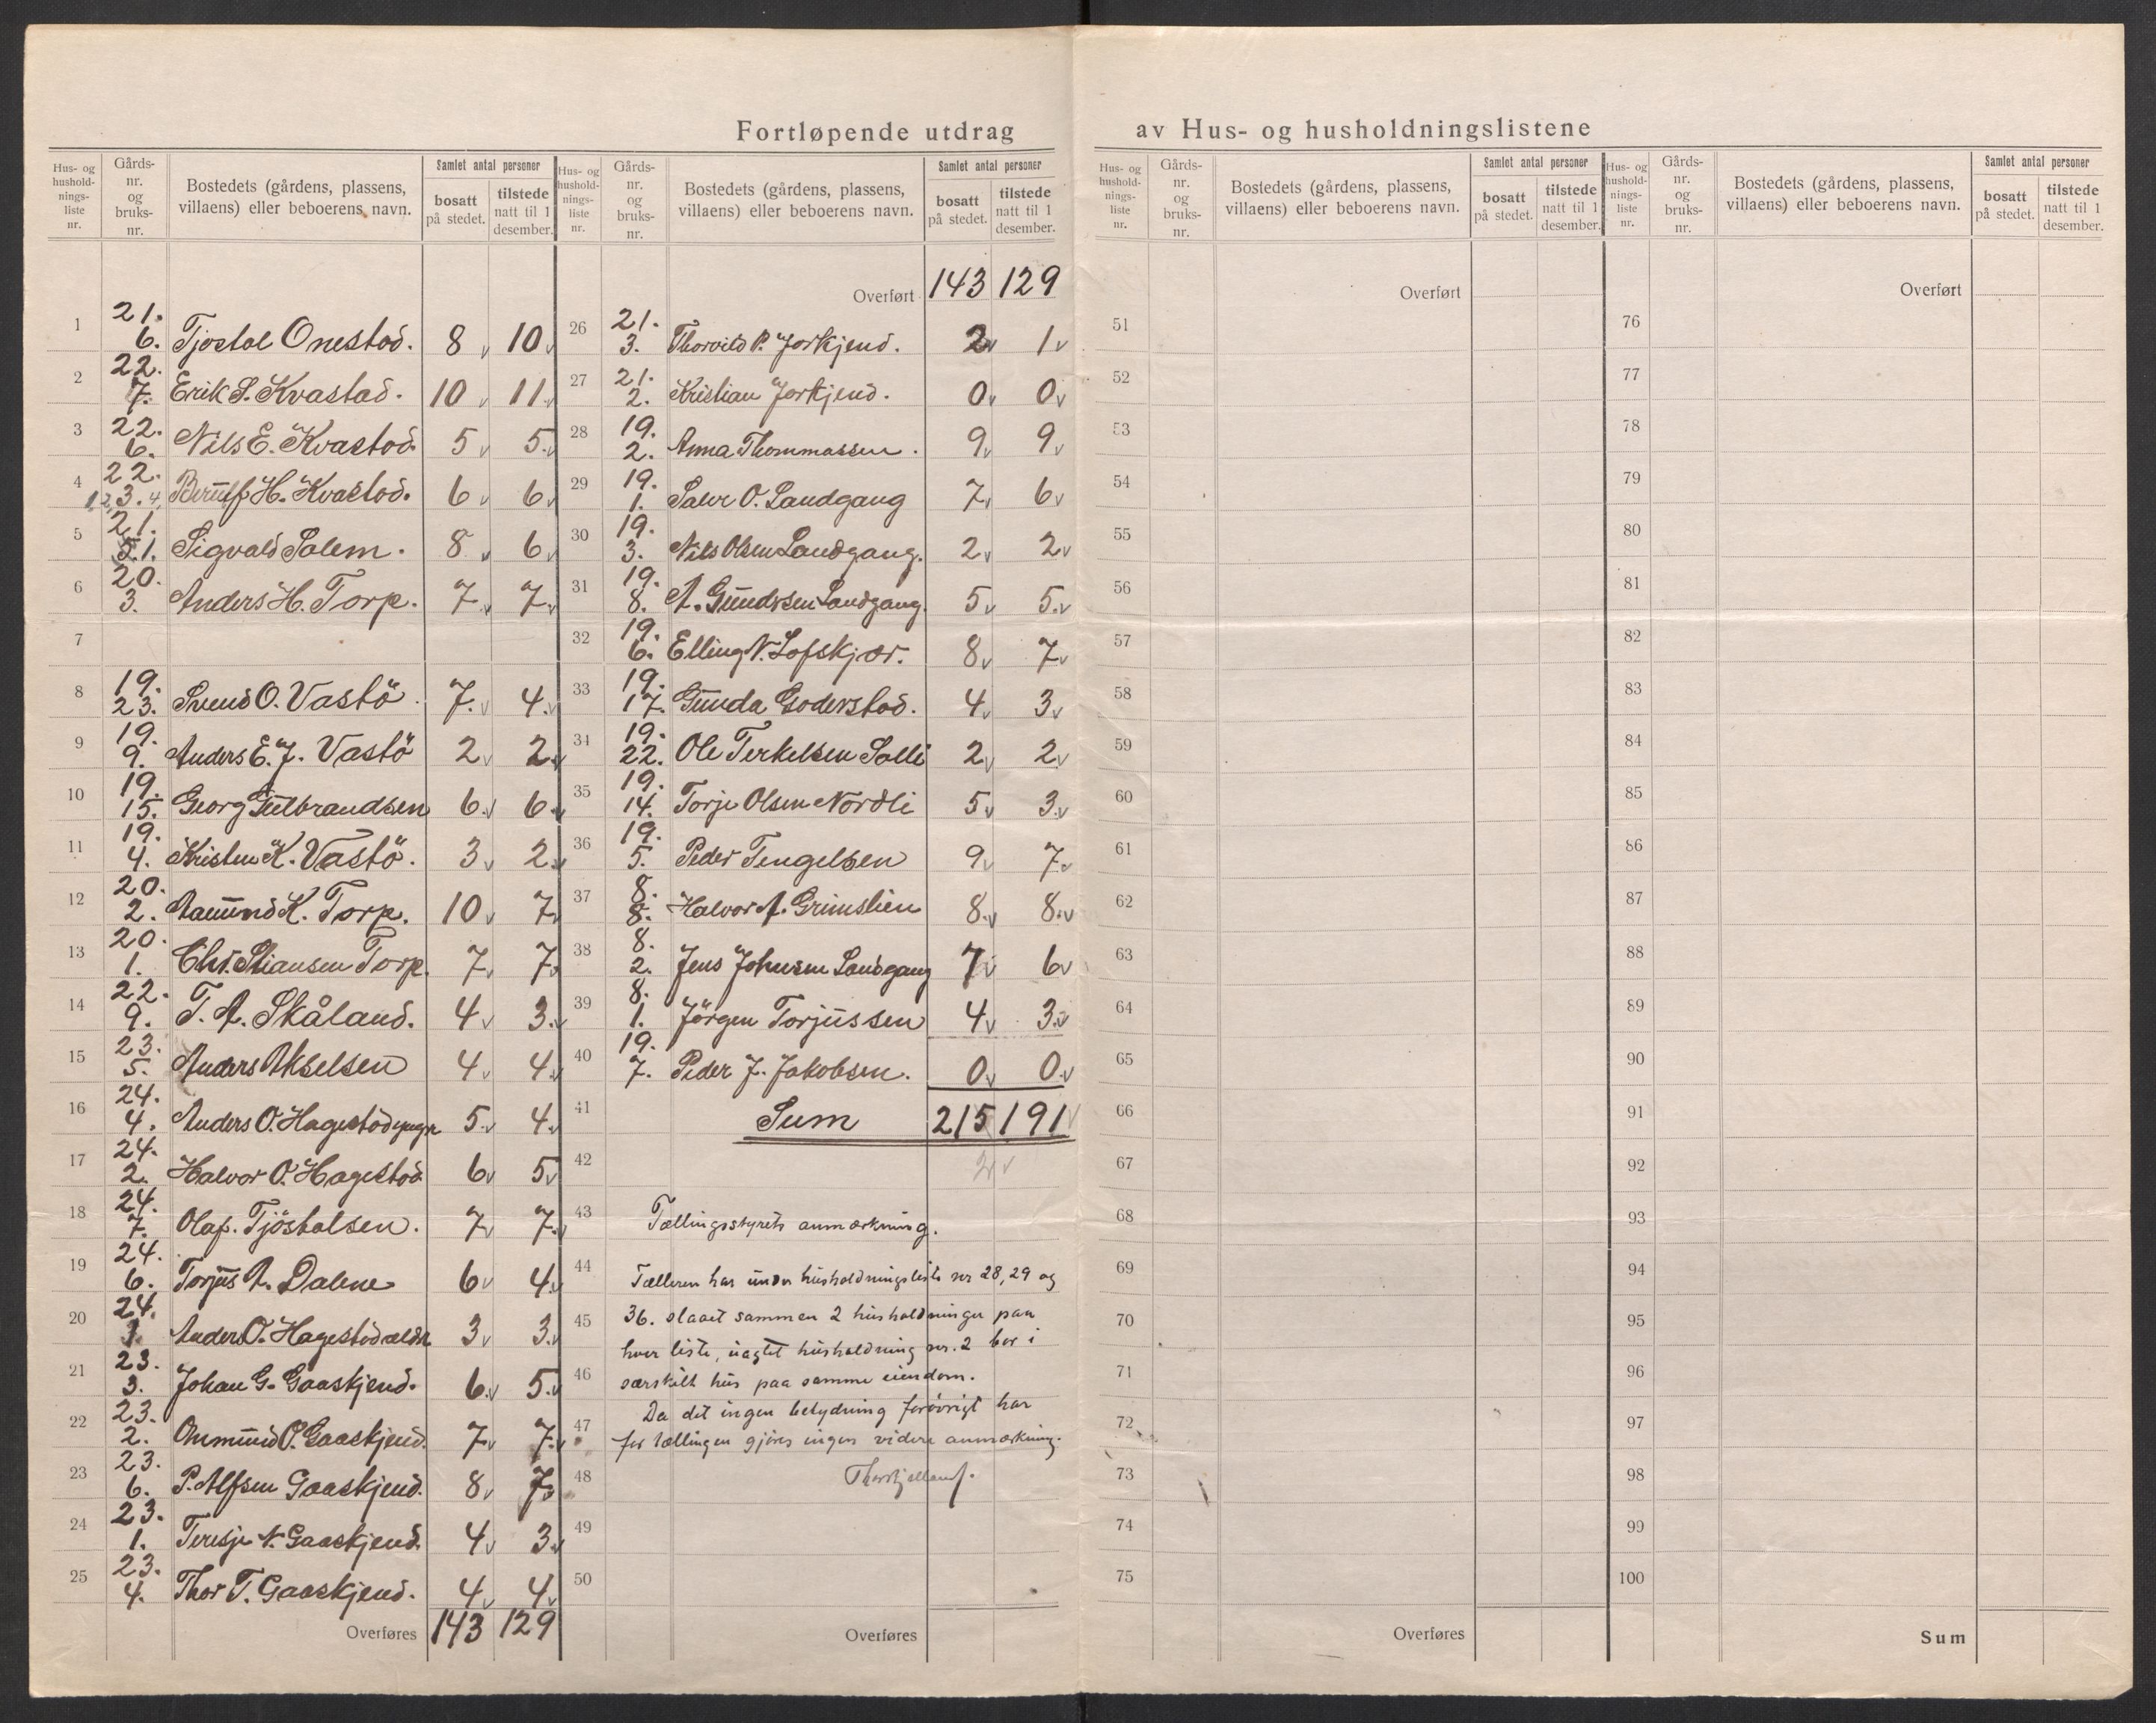 Fortløpende utdrag av Hus- og husholdningslistene
Hus- og hushold-nings-liste nr. Gårds-nr. og bruks-nr. Bostedets (gårdens, plassens, villaens) eller beboerens navn. Samlet antal personer bosatt på stedet. tilstede natt til 1 desember.
1 21. 6. Tjostol Onestad. 8 v 10 v
2 22. 7. Erik S. Kvastad. 10 v 11 v
3 22. 6. Nils E. Kvastad. 5 v 5 v
4 22. 1,2,3.4, Berulf H. Kvastad. 6 v 6 v
5 21. 5.1. Sigvald Solem. 8 v 6 v
6 20. 3. Anders H. Torp. 7 v 7 v
7
8 19. 23. Svend O. Vastö. 7. v 4. v
9 19. 9. Anders E. J. Vastö 2 v 2 v
10 19. 15. Georg Gulbrandsen 6 v 6 v
11 19. 4. Kristen K. Vastö. 3 v 2 v
12 20. 2. Aamund K. Torp. 10 v 7 v
13 20. 1. Chr. Stiansen Torp. 7 v 7 v
14 22. 9. T. A. Skåland. 4 v 3. v
15 23. 5. Anders Akselsen 4 v 4 v
16 24. 4. Anders O. Hagestad yngr 5 v 4 v
17 24. 2. Halvor O. Hagestad 6 v 5 v
18 24. 7. Olaf. Tjöstolsen. 7 v 7 v
19 24. 6. Torjus A. Dalene 6 v 4 v
20 24. Anders O. Hagestad ældr 3 v 3 v
21 23. 3. Johan G. Gaaskjend. 6 v 5 v
22 23. 2. Omund O. Gaaskjend. 7 v 7 v
23 23. 6. P. Alfsen Gaaskjend. 8 v 7 v
24 23. 1. Teresje N. Gaaskjend. 4 v 3 v
25 23. 4. Thor T. Gaaskjend. 4 v 4 v
Overføres 143 129
Hus- og hushold-nings-liste nr. Gårds-nr. og bruks-nr. Bostedets (gårdens, plassens, villaens) eller beboerens navn. Samlet antal personer bosatt på stedet. tilstede natt til 1 desember.
Overført 143 129
26 21. 3. Thorvild P. Jorkjend. 2 v 1 v
27 21. 2. Kristian Jorkjend. 0 v 0 v
28 19. 2. Anna Thommassen. 9 v 9 v
29 19. 1. Salve O. Landgang 7 v 6 v
30 19. 3. Nils Olsen Landgang. 2 v 2 v
31 19. 8. A. Gundersen Landgang. 5 v 5 v
32 19. 6. Elling N. Lofskjær. 8 v 7 v
33 19. 17. Gunda Goderstad. 4 v 3 v
34 19. 22. Ole Terkelsen Solli 2 v 2 v
35 19. 14. Torje Olsen Nordli 5 v 3 v
36 19. 5. Peder Tengelsen 9 v 7 v
37 8. 8. Halvor A. Grimslien 8 v 8 v
38 8. 2. Jens Johnsen Landgang 7 v 6 v
39 8. 1. Jörgen Torjussen 4 v 3 v
40 19. 7. Peder J. Jakobsen. 0 v 0 v
41 Sum 215 191
42 2 v
43 Tællingsstyrets anmærkning.
44 Tælleren har under husholdningsliste nr 28, 29 og
45 36. slaaet sammen 2 husholdninger paa
hver liste, uagtet husholdning nr. 2 bor i
46 særskilt hus paa samme eiendom.
Da det ingen betydning forövrigt har
47 for tællingen gjöres ingen videre anmærkning.
48
49
50
Overføres
Hus- og hushold-nings-liste nr. Gårds-nr. og bruks-nr. Bostedets (gårdens, plassens, villaens) eller beboerens navn. Samlet antal personer bosatt på stedet. tilstede natt til 1 desember.
Overført
51
52
53
54
55
56
57
58
59
60
61
62
63
64
65
66
67
68
69
70
71
72
73
74
75
Overføres
Hus- og hushold-nings-liste nr. Gårds-nr. og bruks-nr. Bostedets (gårdens, plassens, villaens) eller beboerens navn. Samlet antal personer bosatt på stedet. tilstede natt til 1 desember.
Overført
76
77
78
79
80
81
82
83
84
85
86
87
88
89
90
91
92
93
94
95
96
97
98
99
100
Sum